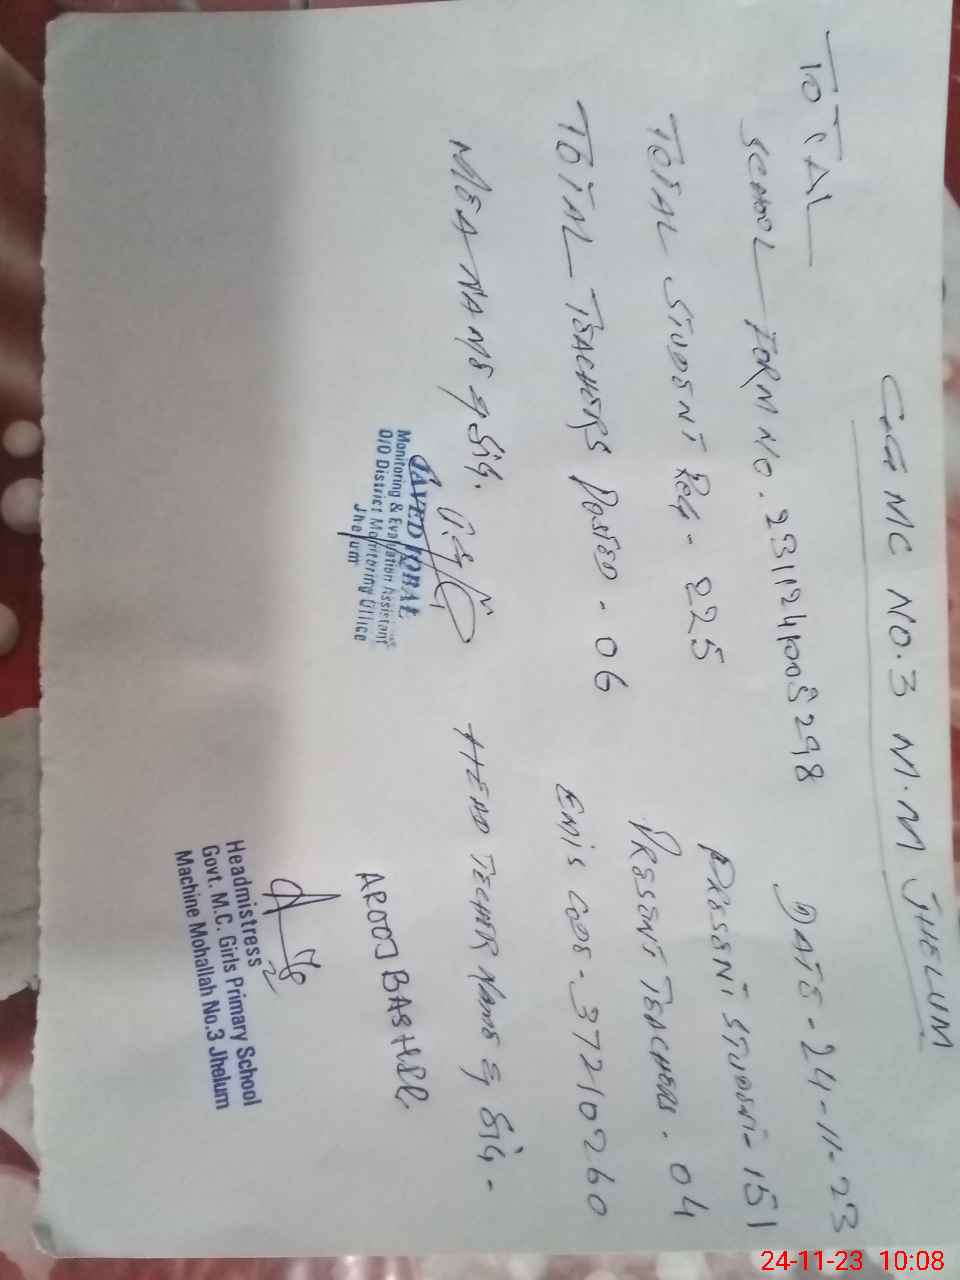 GG MC NO.3 M.M JHELUM
TOTAL
DATE - 24-11-23
SCHOOL FORM NO. 2311241005298
PRESENT STUDENT - 151
TOTAL STUDENT Reg - 225
PRESENT TEACHERS. 04
TOTAL TEACHERS POSTED - 06
EMIS CODE - 37210260
MEA NAME & Sig.
HEAD TECHR NAME & Sig. -
JAVED IQBAL
Monitoring & Evaluation Assistant
O/O District Monitoring Office
Jhelum
AROOJ BASHIR
Headmistress
Govt. M.C. Girls Primary School
Machine Mohallah No.3 Jhelum
24-11-23 10:08